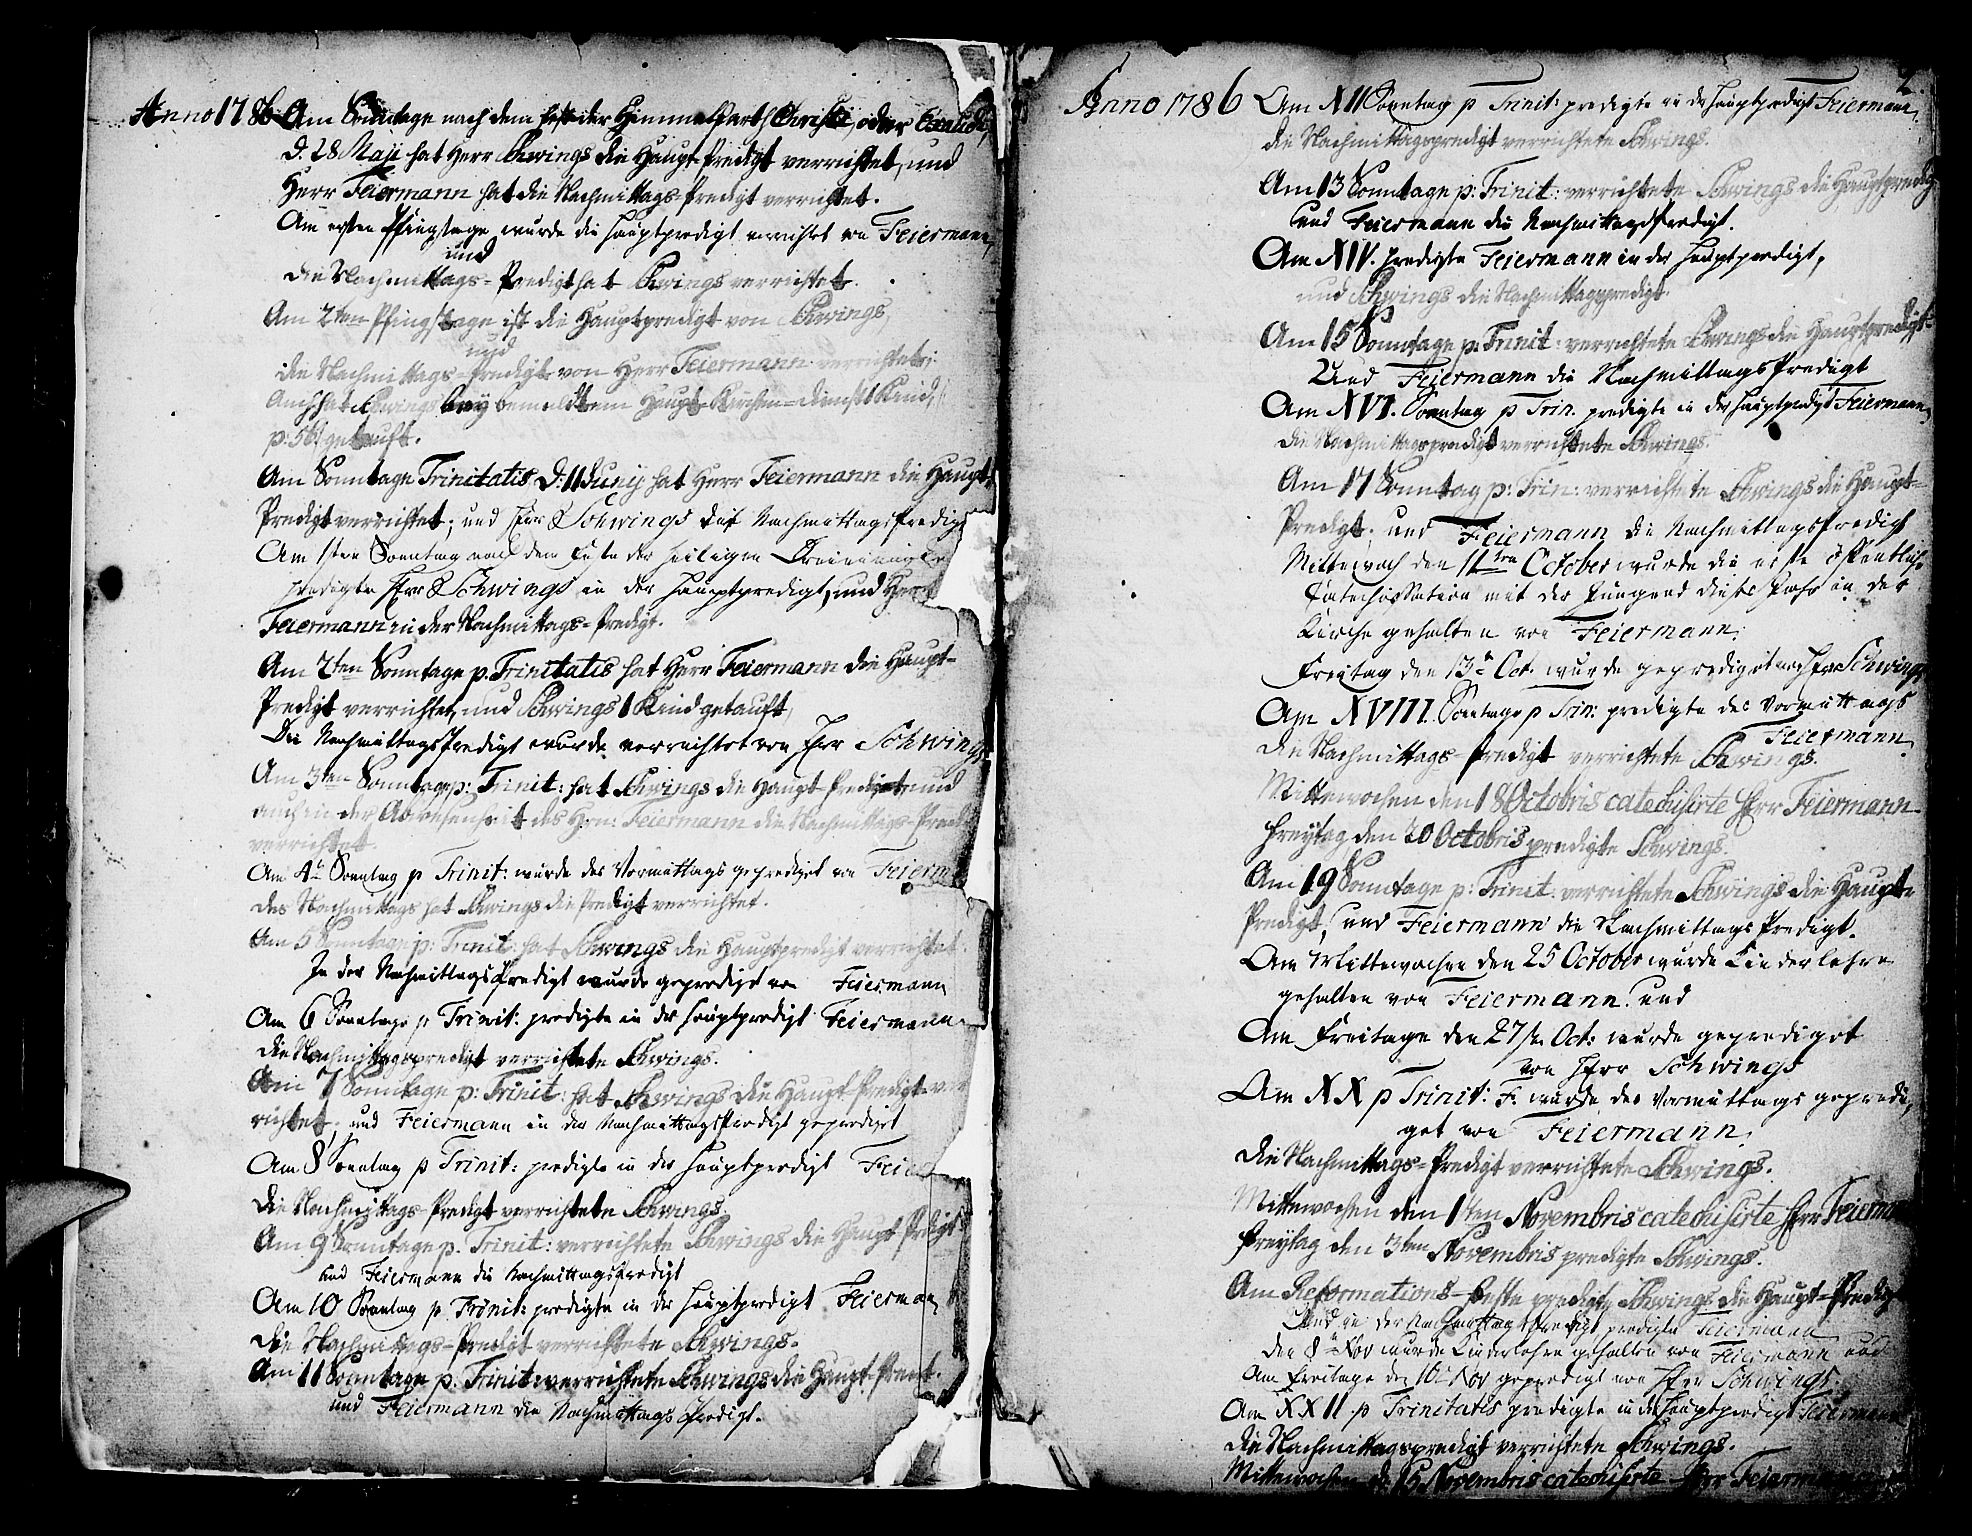 Anno 1786 Am Sonntage nach dem Feste der Himmelfarth Christi, oder Exaudi,
d. 28 Maji hat Herr Schwings die Haupt-Predigt verrichtet, und
Herr Feiermann hat die Nachmittags-Predigt verrichtet.
Am ersten Pfingstage wurde die Hauptpredigt verrichtet von Feiermann,
und
die Nachmittags-Predigt hat Schwings verrichtet.
Am 2ten Pfingstage ist die Hauptpredigt von Schwings,
und
die Nachmittags-Predigt von Herr Feiermann verrichtet;
Auch hat Schwings bey bemeldtem Haupt-Kirchen-Dienst 1 Kind,
getauft.
Am Sonntage Trinitatis D. 11 Junij hat Herr Feiermann die Haupt-
Predigt verrichtet; und Herr Schwings die Nachmittagspredigt
Am 1sten Sonntag nach dem Feste der heiligen Dreieinigke
predigte Herr Schwings in der Hauptpredigt, und Herr
Feiermann in der Nachmittags-Predigt.
Am 2ten Sonntage p. Trinitatis hat Herr Feiermann die Haupt-
Predigt verrichtet, und Schwings 1 Kind getauft,
Die Nachmittagspredigt wurde verrichtet von Herr Schwings.
Am 3ten Sonntage p: Trinit: hat Schwings die Haupt-Predigt und
auch in der Abwesenheit des Hrn: Feiermann die Nachmittags-Predi
verrichtet.
Am 4t Sonntag p Trinit: wurde des Vormittags geprediget von Feierm
des Nachmittags hat Schwings die Predigt verrichtet.
Am 5 Sonntage p: Trinit: hat Schwings die Hauptpredigt verrichtet
In der Nachmittagspredigt wurde geprediget von Feiermann
Am 6 Sonntage p Trinit: predigte in der Hauptpredigt Feiermann
die Nachmittagspredigt verrichtete Schwings.
Am 7 Sonntage p: Trinit: hat Schwings die Haupt-Predigt ver
richtet, und Feiermann in der Nachmittagspredigt geprediget
Am 8 Sonntag p Trinit: predigte in der Hauptpredigt Feier
die Nachmittags-Predigt verrichtete Schwings.
Am 9 Sonntage p. Trinit: verrichtete Schwings die Haupt Predigt
und Feiermann die Nachmittagspredigt
Am 10 Sonntag p. Trinit: predigte in der Hauptpredigt Feierman
die Nachmittags-Predigt verrichtete Schwings.
Am 11 Sonntage p. Trinit: verrichtete Schwings die Haupt-Predt.
und Feiermann die Nachmittags Predigt.
2.
Anno 1786 Am XII Sonntag p Trinit: predigte in der Hauptpredigt Feiermann,
die Nachmittagspredigt verrichtete Schwings.
Am 13 Sonntage p: Trinit: verrichtete Schwings die Hauptpredig
und Feiermann die Nachmittagspredigt.
Am XIV. predigte Feiermann in der Hauptpredigt,
und Schwings die Nachmittagspredigt.
Am 15 Sonntage p. Trinit: verrichtete Schwings die Hauptpredigt
Und Feiermann die Nachmittagspredigt
Am XVI. Sonntag p Trin. predigte in der Hauptpredigt Feiermann,
die Nachmittagspredigt verrichtete Schwings.
Am 17 Sonntag p: Trin: verrichtete Schwings die Haupt-
Predigt, und Feiermann die Nachmittagspredigt
Mittewoch den 11ten October wurde die erste öffentlich
Catechisation mit der Jungend dieses Jahr in der
Kirche gehalten von Feiermann.
Freitag den 13t Oct. wurde geprediget von Herr Schwings
Am XVIII. Sonntage p Trin: predigte des Vormittags
Feiermann
die Nachmittags-Predigt verrichtete Schwings.
Mittewochen den 18 Octobris catechisirte Herr Feiermann
Freytag, den 20 Octobris predigte Schwings.
Am 19 Sonntage p: Trinit: verrichtete Schwings die Haupt-
Predigt, und Feiermann die Nachmittags Predigt.
Am Mittewochen den 25 October wurde Kinderlehre
gehalten von Feiermann. und
Am Freitage den 27ten Oct: wurde geprediget
von Herr Schwings
Am XX p Trinit: F. wurde des Vormittags gepredi,
get von Feiermann.
die Nachmittags-Predigt verrichtete Schwings.
Mittewochen den 1sten Novembris catechisirte Herr Feierman
Freytag den 3ten Novembris predigte Schwings.
Am Reformations-Feste predigte Schwings die Haupt-Predigt
Und in der Nachmittagspredigt predigte Feiermann
den 8t Nov wurde Kinderlehre gehalten von Feiermann und
Am Freitage den 10t Nov geprediget von Herr Schwings.
Am XXII p Trinitatis predigte in der Hauptpredigt Feiermann
die Nachmittagspredigt verrichtete Schwings.
Mittewochen d. 15 Novembris catechisirte Herr Feiermann